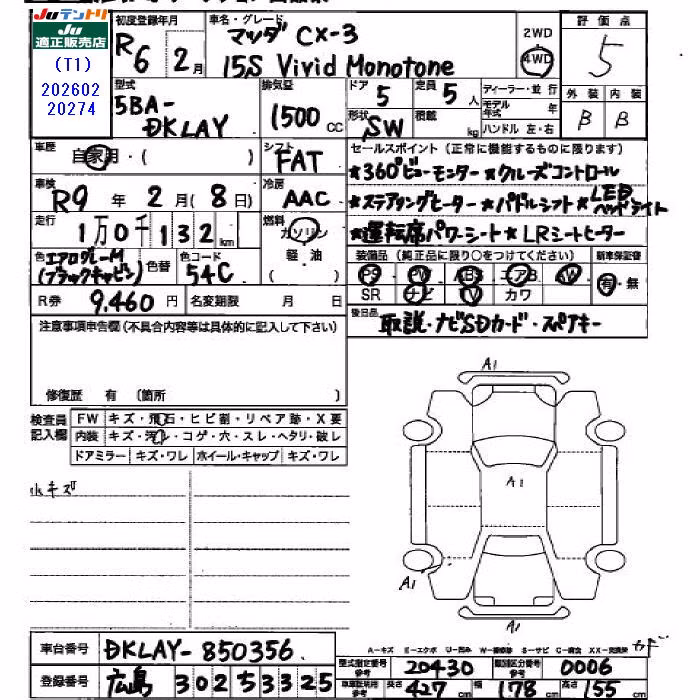 Juテントリ
Ju
適正販売店
(T1)
202602
20274
初度登録年月
R6 2月
車名・グレード
マツダ CX-3
15S Vivid Monotone
2WD
4WD
評価点
5
型式
5BA-
DKLAY
排気量
1500 cc
ドア 5
定員 5 人
形状 SW
積載 kg
ディーラー・並行
モデル年式 年
ハンドル 左・右
外装 内装
B B
車歴
自家用・( )
シフト
FAT
セールスポイント(正常に機能するものに限ります)
★360°ビューモニター★クルーズコントロール
★ステアリングヒーター★パドルシフト★LEDヘッドライト
★運転席パワーシート★LRシートヒーター
車検
R9 年 2 月(8 日)
冷房
AAC
走行
1万0千132km
燃料
ガソリン
軽・油
( )
色 エアログレーM
(ブラックキャビン)
色替
色コード
54C
装備品(純正品に限り○をつけてください)
新車保証書
PS PW ABS エアB AW
SR ナビ TV カワ
有・無
R券 9.460 円
名変期限 月 日
後日品
取説・ナビSDカード・スペアキー
注意事項申告欄(不具合内容等は具体的に記入して下さい)
修復歴 有 〔箇所 〕
検査員
記入欄
FW キズ・飛石・ヒビ割・リペア跡・X要
内装 キズ・汚レ・コゲ・穴・スレ・ヘタリ・破レ
ドアミラー キズ・ワレ ホイール・キャップ キズ・ワレ
小キズ
A1
A1
A1
A1
A-キズ E-エクボ U-凹み W-補修跡 S-サビ C-腐食 XX-交換済
車台番号 DKLAY-850356
登録番号 広島 302 5 3325
型式指定番号 参考 20430
類別区分番号 参考 0006
車庫証明用 参考 長さ 427 cm 幅 178 cm 高さ 155 cm